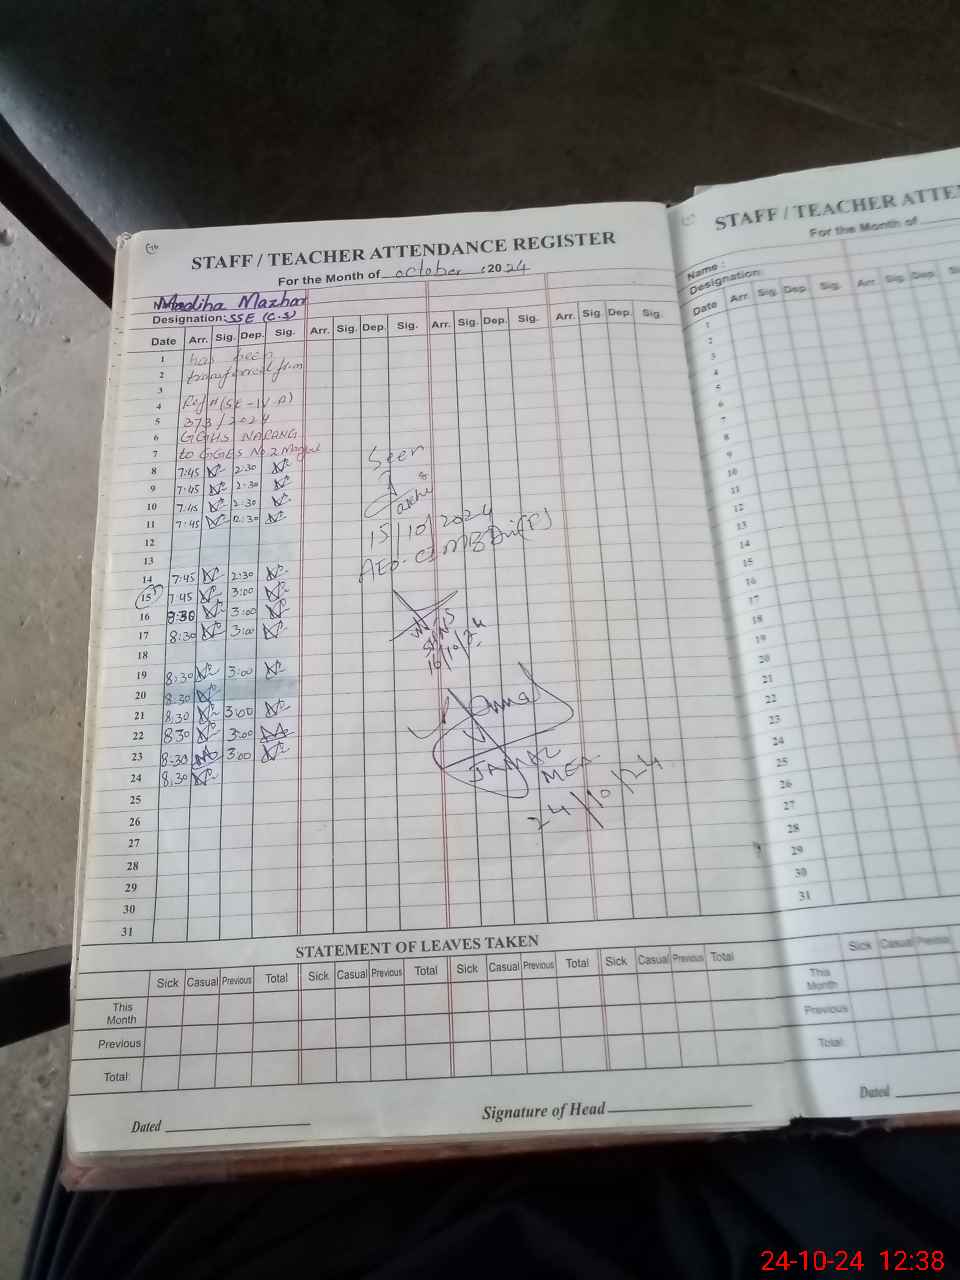 STAFF / TEACHER ATTENDANCE REGISTER
For the Month of October : 20 24
Madiha Mazhar
Designation: SSE (C.S)
Date Arr. Sig. Dep. Sig. Arr. Sig. Dep. Sig. Arr. Sig. Dep. Sig. Arr. Sig. Dep. Sig.
1 has been
2 transferred from
3
4 Ref # (SE-IV-A)
5 373/2024
6 GGHS NARANG
7 to GGES No 2
8 7:45 2:30
9 7:45 2:30
10 7:45 2:30
11 7:45 2:30
12
13
14 7:45 2:30
15 7:45 3:00
16 8:30 3:00
17 8:30 3:00
18
19 8:30 3:00
20 8:30
21 8:30 3:00
22 8:30 3:00
23 8:30 3:00
24 8:30
25
26
27
28
29
30
31
Seen
15/10/2024
AEO
16/10/24
MEA
24/10/24
STATEMENT OF LEAVES TAKEN
Sick Casual Previous Total Sick Casual Previous Total Sick Casual Previous Total Sick Casual Previous Total
This Month
Previous
Total:
Dated
Signature of Head
STAFF / TEACHER ATTEN
For the Month of
Name :
Designation:
Date Arr. Sig. Dep. Sig. Arr. Sig. Dep. Sig.
1
2
3
4
5
6
7
8
9
10
11
12
13
14
15
16
17
18
19
20
21
22
23
24
25
26
27
28
29
30
31
Sick Casual Previous
This Month
Previous
Total:
Dated
24-10-24 12:38